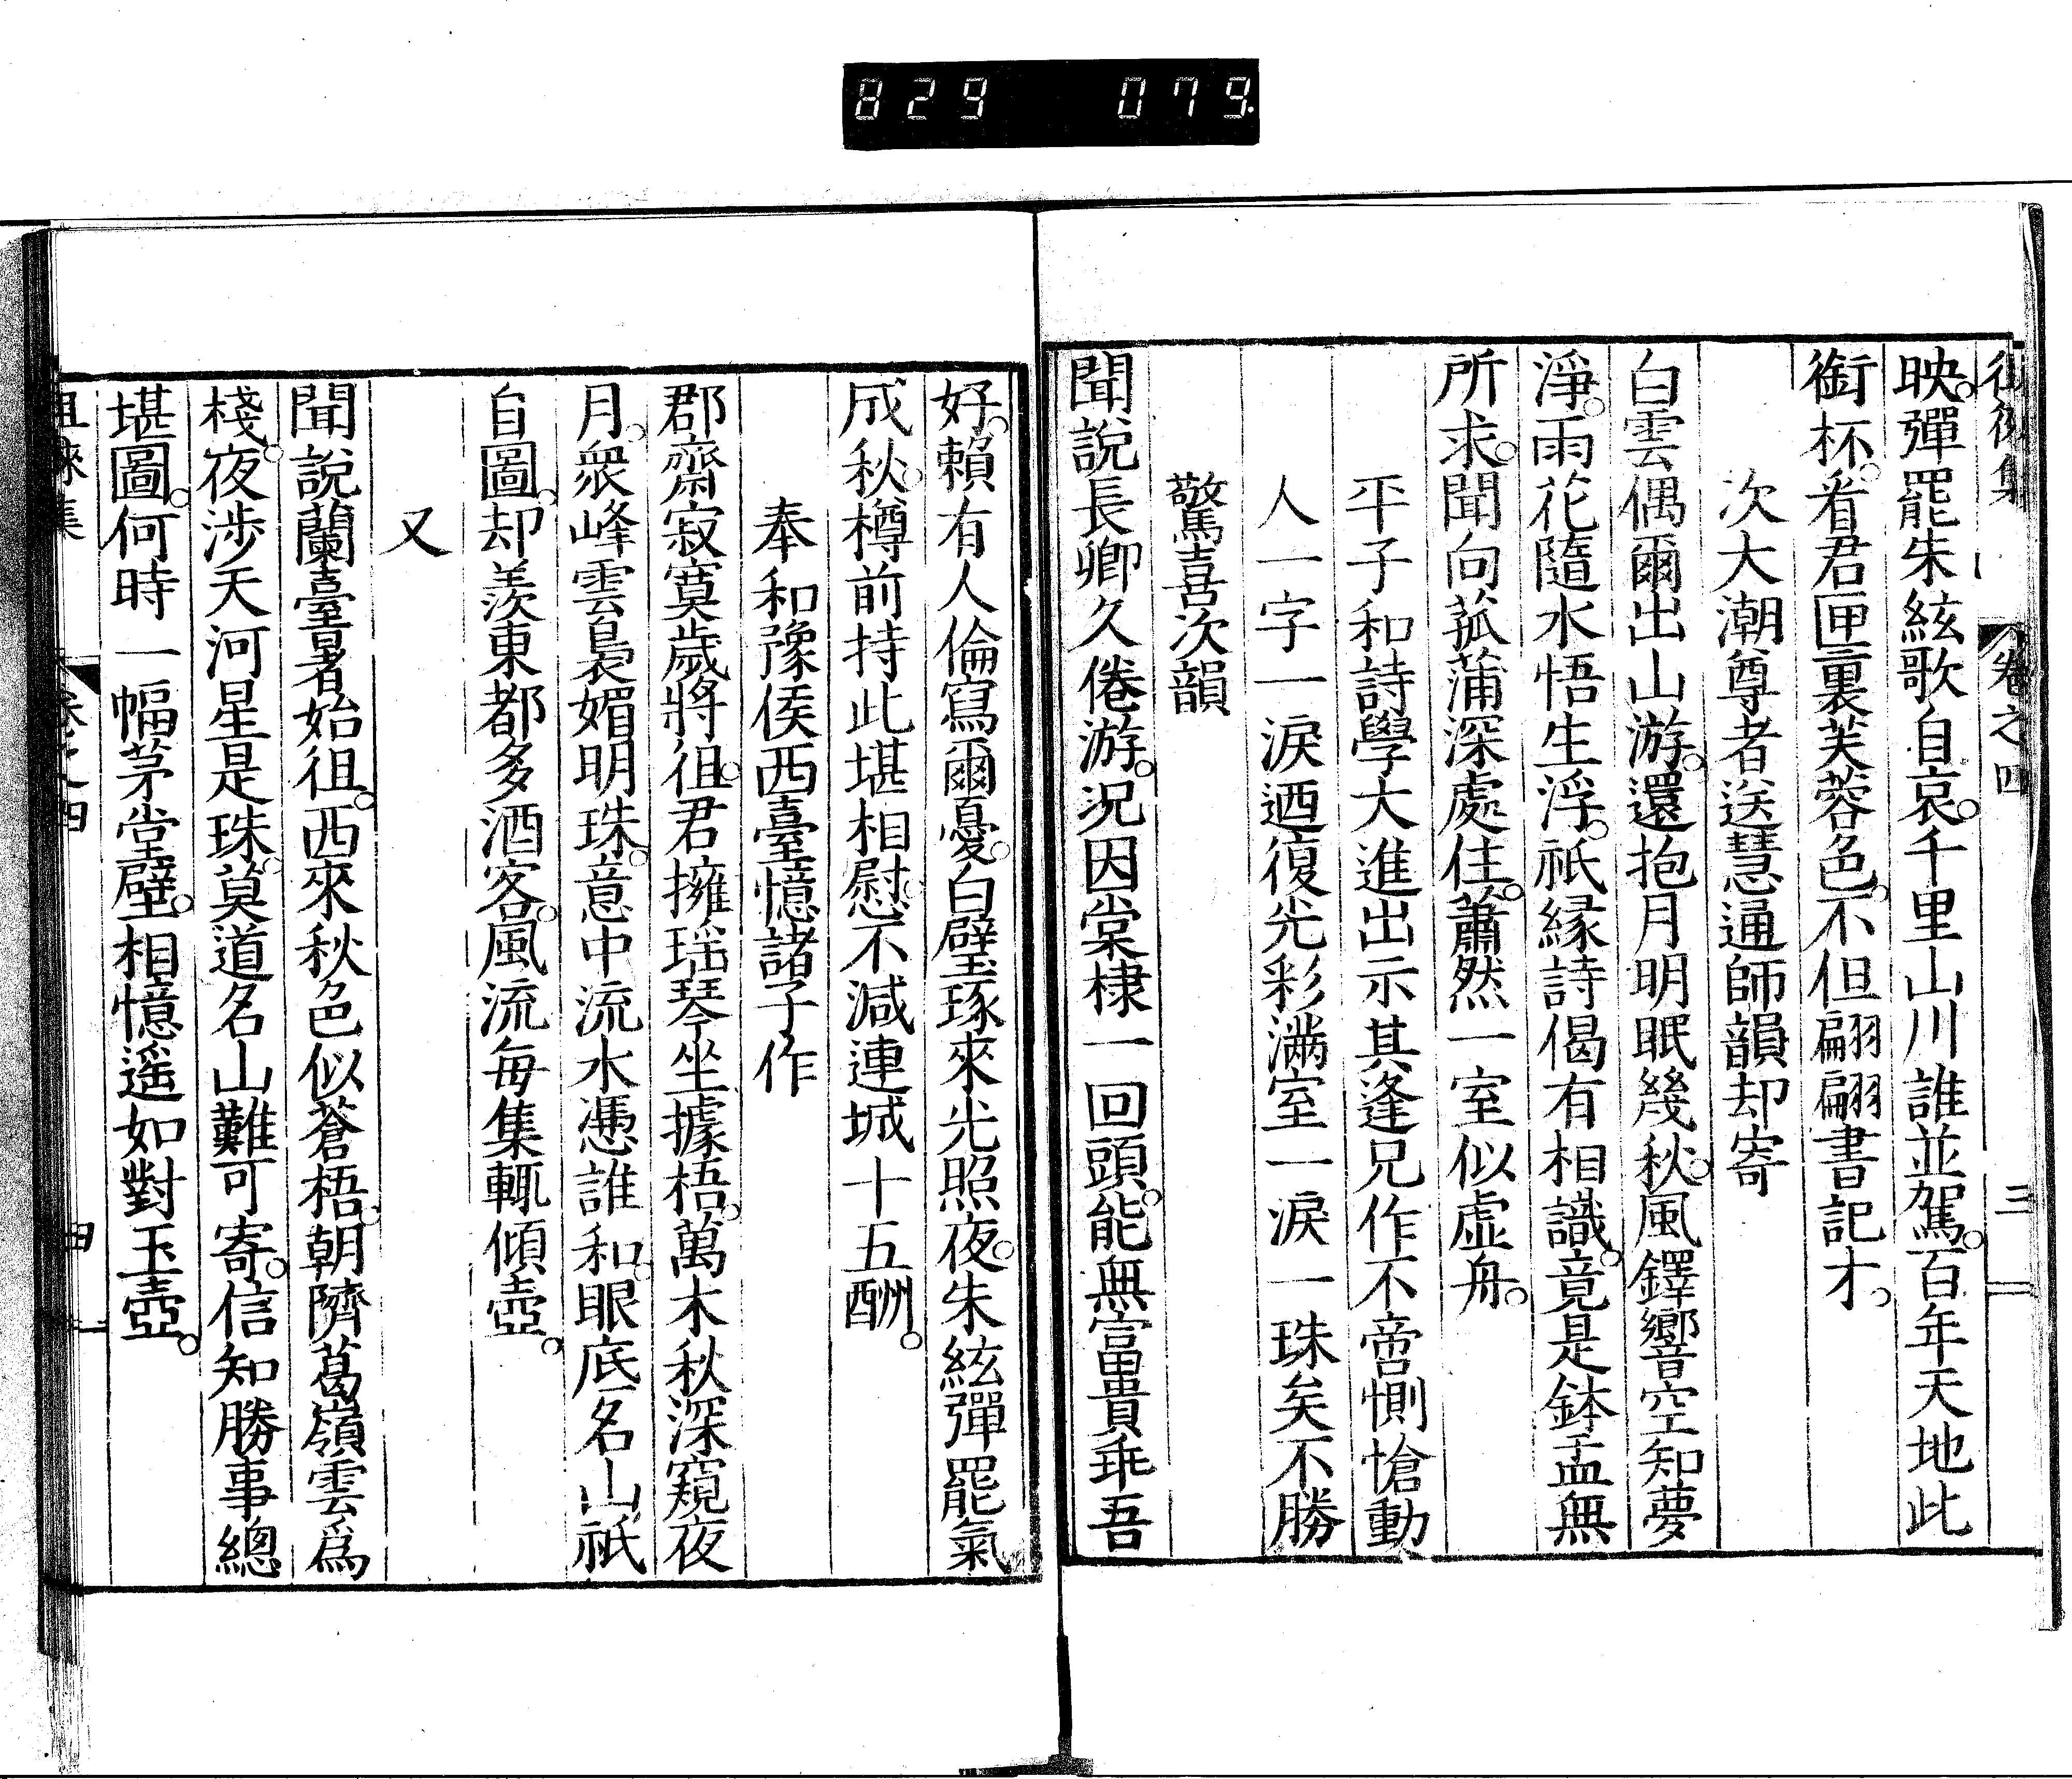 829 079.
集 卷之四 三
映。彈罷朱絃歌自哀。千里山川誰並駕。百年天地此
銜杯。看君匣裏芙蓉色。不但翩翩書記才。
次大潮尊者送慧通師韻却寄
白雲偶爾出山游。還抱月明眠幾秋。風鐸響空知夢
淨。雨花隨水悟生浮。祇縁詩偈有相識。竟是鉢盂無
所求。聞向菰蒲深處住。蕭然一室似虛舟。
平子和詩學大進出示其逢兄作不啻惻愴動
人一字一淚迺復光彩滿室一淚一珠矣不勝
驚喜次韻
聞說長卿久倦游。況因棠棣一回頭。能無富貴乖吾
好。賴有人倫寫爾憂。白璧琢來光照夜。朱絃彈罷氣
成秋。樽前持此堪相慰。不減連城十五酬。
奉和豫侯西臺憶諸子作
郡齋寂寞歲將徂。君擁瑤琴坐據梧。萬木秋深窺夜
月。衆峰雲裊媚明珠。意中流水憑誰和。眼底名山祇
自圖。却羨東都多酒客。風流每集輒傾壺。
又
聞說蘭臺暑始徂。西來秋色似蒼梧。朝隮葛嶺雲爲
棧。夜渉天河星是珠。莫道名山難可寄。信知勝事總
堪圖。何時一幅茅堂壁。相憶遥如對玉壺。
徂徠集 卷之四 四